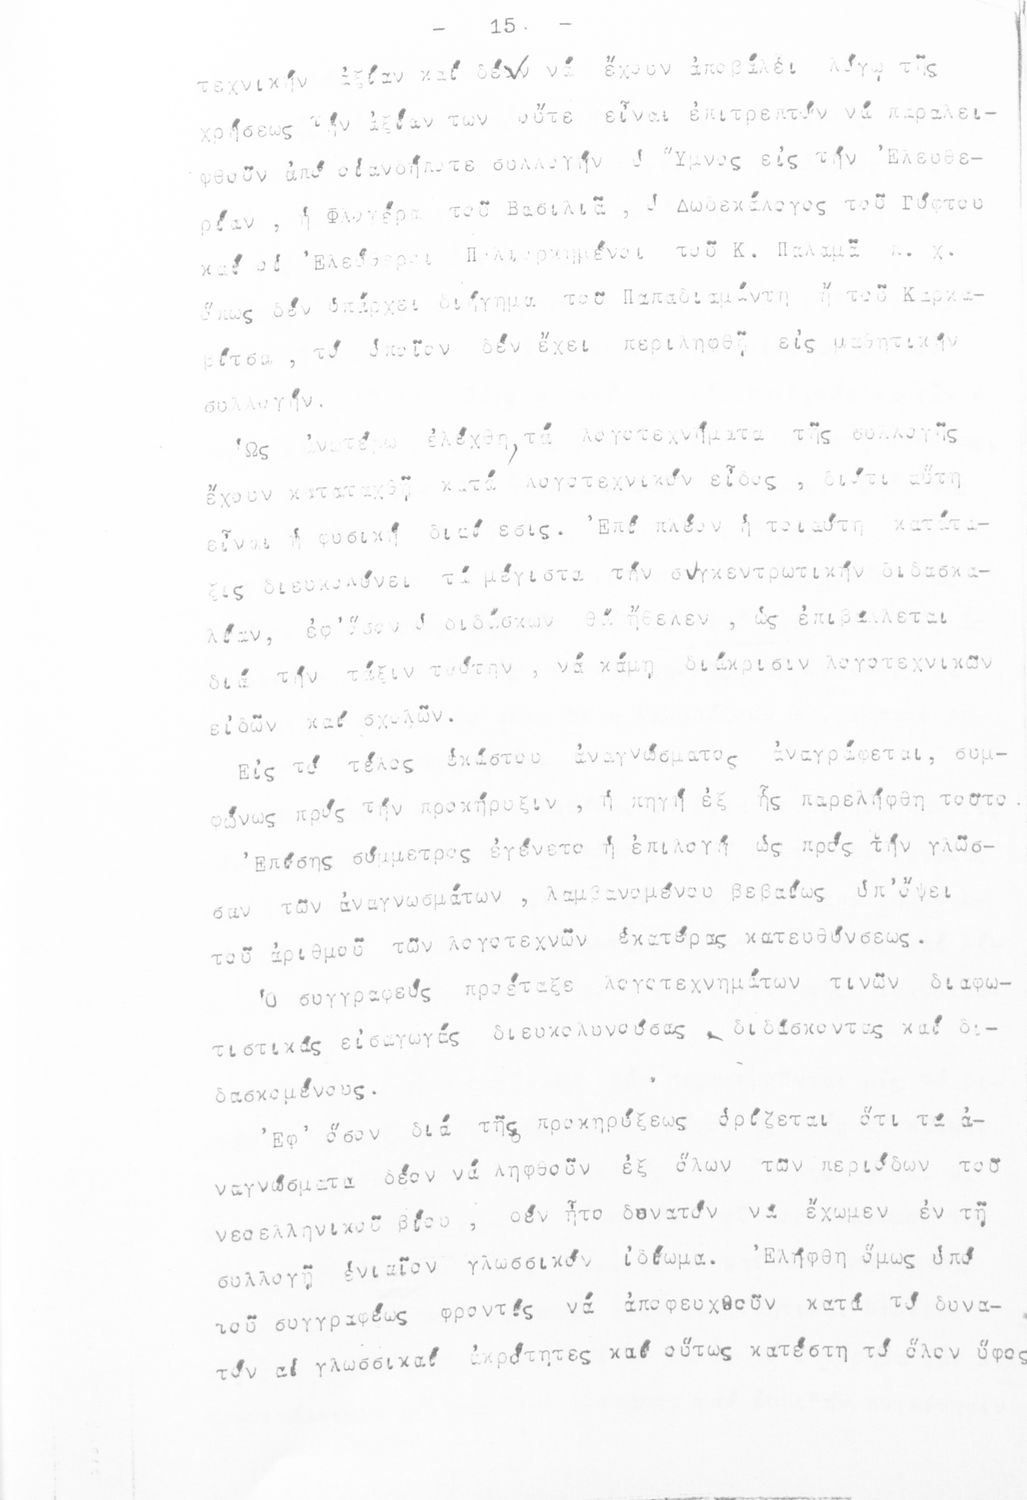 - 15. -
τεχνικήν ἀξίαν καί δέν νά ἔχουν ἀποβάλει λόγῳ τῆς
χρήσεως τήν ἀξίαν των οὔτε εἶναι ἐπιτρεπτόν νά παραλει-
φθοῦν ἀπό οἱανδήποτε συλλογήν ὁ Ὕμνος εἰς τήν Ἐλευθε-
ρίαν , ἡ Φλογέρα τοῦ Βασιλιᾶ , ὁ Δωδεκάλογος τοῦ Γύφτου
καί οἱ Ἐλεύθεροι Πολιορκημένοι τοῦ Κ. Παλαμᾶ π. χ.
ὅπως δέν ὑπάρχει διήγημα τοῦ Παπαδιαμάντη ἤ τοῦ Καρκα-
βίτσα , τό ὁποῖον δέν ἔχει περιληφθῆ εἰς μαθητικήν
συλλογήν.
Ὡς ἀνωτέρω ἐλέχθη, τά λογοτεχνήματα τῆς συλλογῆς
ἔχουν καταταχθῆ κατά λογοτεχνικόν εἶδος , διότι αὕτη
εἶναι ἡ φυσική διαί εσις. Ἐπί πλέον ἡ τοιαύτη κατάτα-
ξις διευκολύνει τά μέγιστα τήν συγκεντρωτικήν διδασκα-
λίαν, ἐφ'ὅσον ὁ διδάσκων θά ἤθελεν , ὡς ἐπιβάλλεται
διά τήν τάξιν ταύτην , νά κάμη διάκρισιν λογοτεχνικῶν
εἰδῶν καί σχολῶν.
Εἰς τό τέλος ἑκάστου ἀναγνώσματος ἀναγράφεται, συμ-
φώνως πρός τήν προκήρυξιν , ἡ πηγή ἐξ ἧς παρελήφθη τοῦτο.
Ἐπίσης σύμμετρος ἐγένετο ἡ ἐπιλογή ὡς πρός τήν γλῶσ-
σαν τῶν ἀναγνωσμάτων , λαμβανομένου βεβαίως ὑπ'ὄψει
τοῦ ἀριθμοῦ τῶν λογοτεχνῶν ἑκατέρας κατευθύνσεως.
Ὁ συγγραφεύς προέταξε λογοτεχνημάτων τινῶν διαφω-
τιστικάς εἰσαγωγάς διευκολυνούσας διδάσκοντας καί δι-
δασκομένους.
Ἐφ' ὅσον διά τῆς προκηρύξεως ὁρίζεται ὅτι τα ἀ-
ναγνώσματα δέον νά ληφθοῦν ἐξ ὅλων τῶν περιόδων τοῦ
νεοελληνικοῦ βίου , δέν ἦτο δυνατόν νά ἔχωμεν ἐν τῆ
συλλογῆ ἑνιαῖον γλωσσικόν ἰδίωμα. Ἐλήφθη ὅμως ὑπό
τοῦ συγγραφέως φροντίς νά ἀποφευχθοῦν κατά τό δυνα-
τόν αἱ γλωσσικαί ἀκρότητες καί οὕτως κατέστη τό ὅλον ὕφος